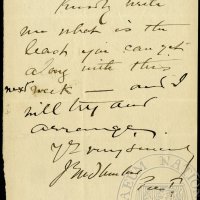 Kindly write
me what is the
least you can get
along with this
next week — and I
will try and
arrange.
Yr very sincerely
Prest.